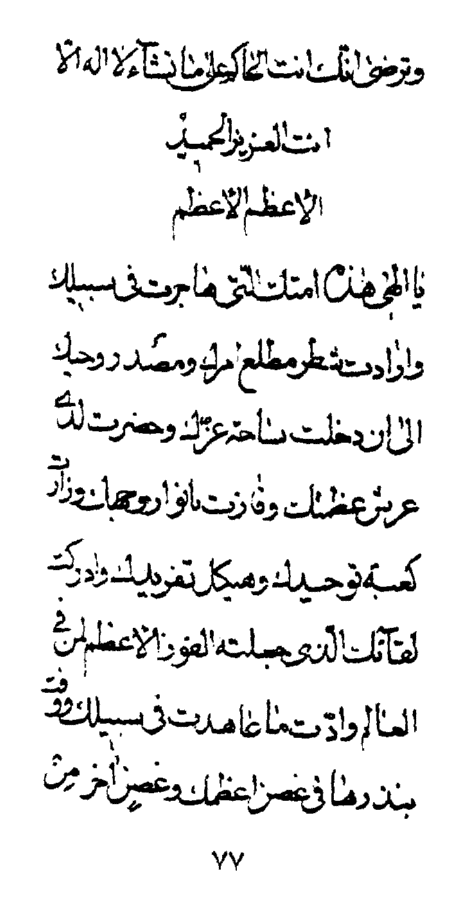 وترضی انّک انت الحاکم علی ما تشآء لا اله الّا
انت العزیز الحمید
الاعظم الاعظم
یا الهی هذه امتک الّتی هاجرت فی سبیلک
وارادت شطر مطلع امرک ومصدر وحیک
الی ان دخلت ساحة عزّک وحضرت لدی
عرش عظمتک وفازت بانوار وجهک وزارت
کعبة توحیدک وهیکل تفریدک وادرکت
لقآئک الّذی جعلته الفوز الاعظم لمن فی
العالم وادّت ما عاهدت فی سبیلک ووفت
بنذرها فی غصن اعظمک وغصنٍ اخر من
۷۷